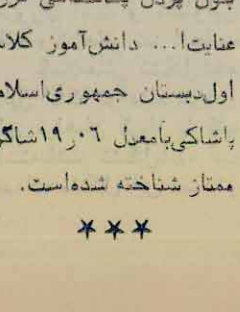 عنایت‌ا... دانش‌آموز کلا
اول‌دبستان جمهوری‌اسلام
پاشاکی‌بامعدل ۱۹٫۰۶ شاگر
ممتاز شناخته شده‌است.
***